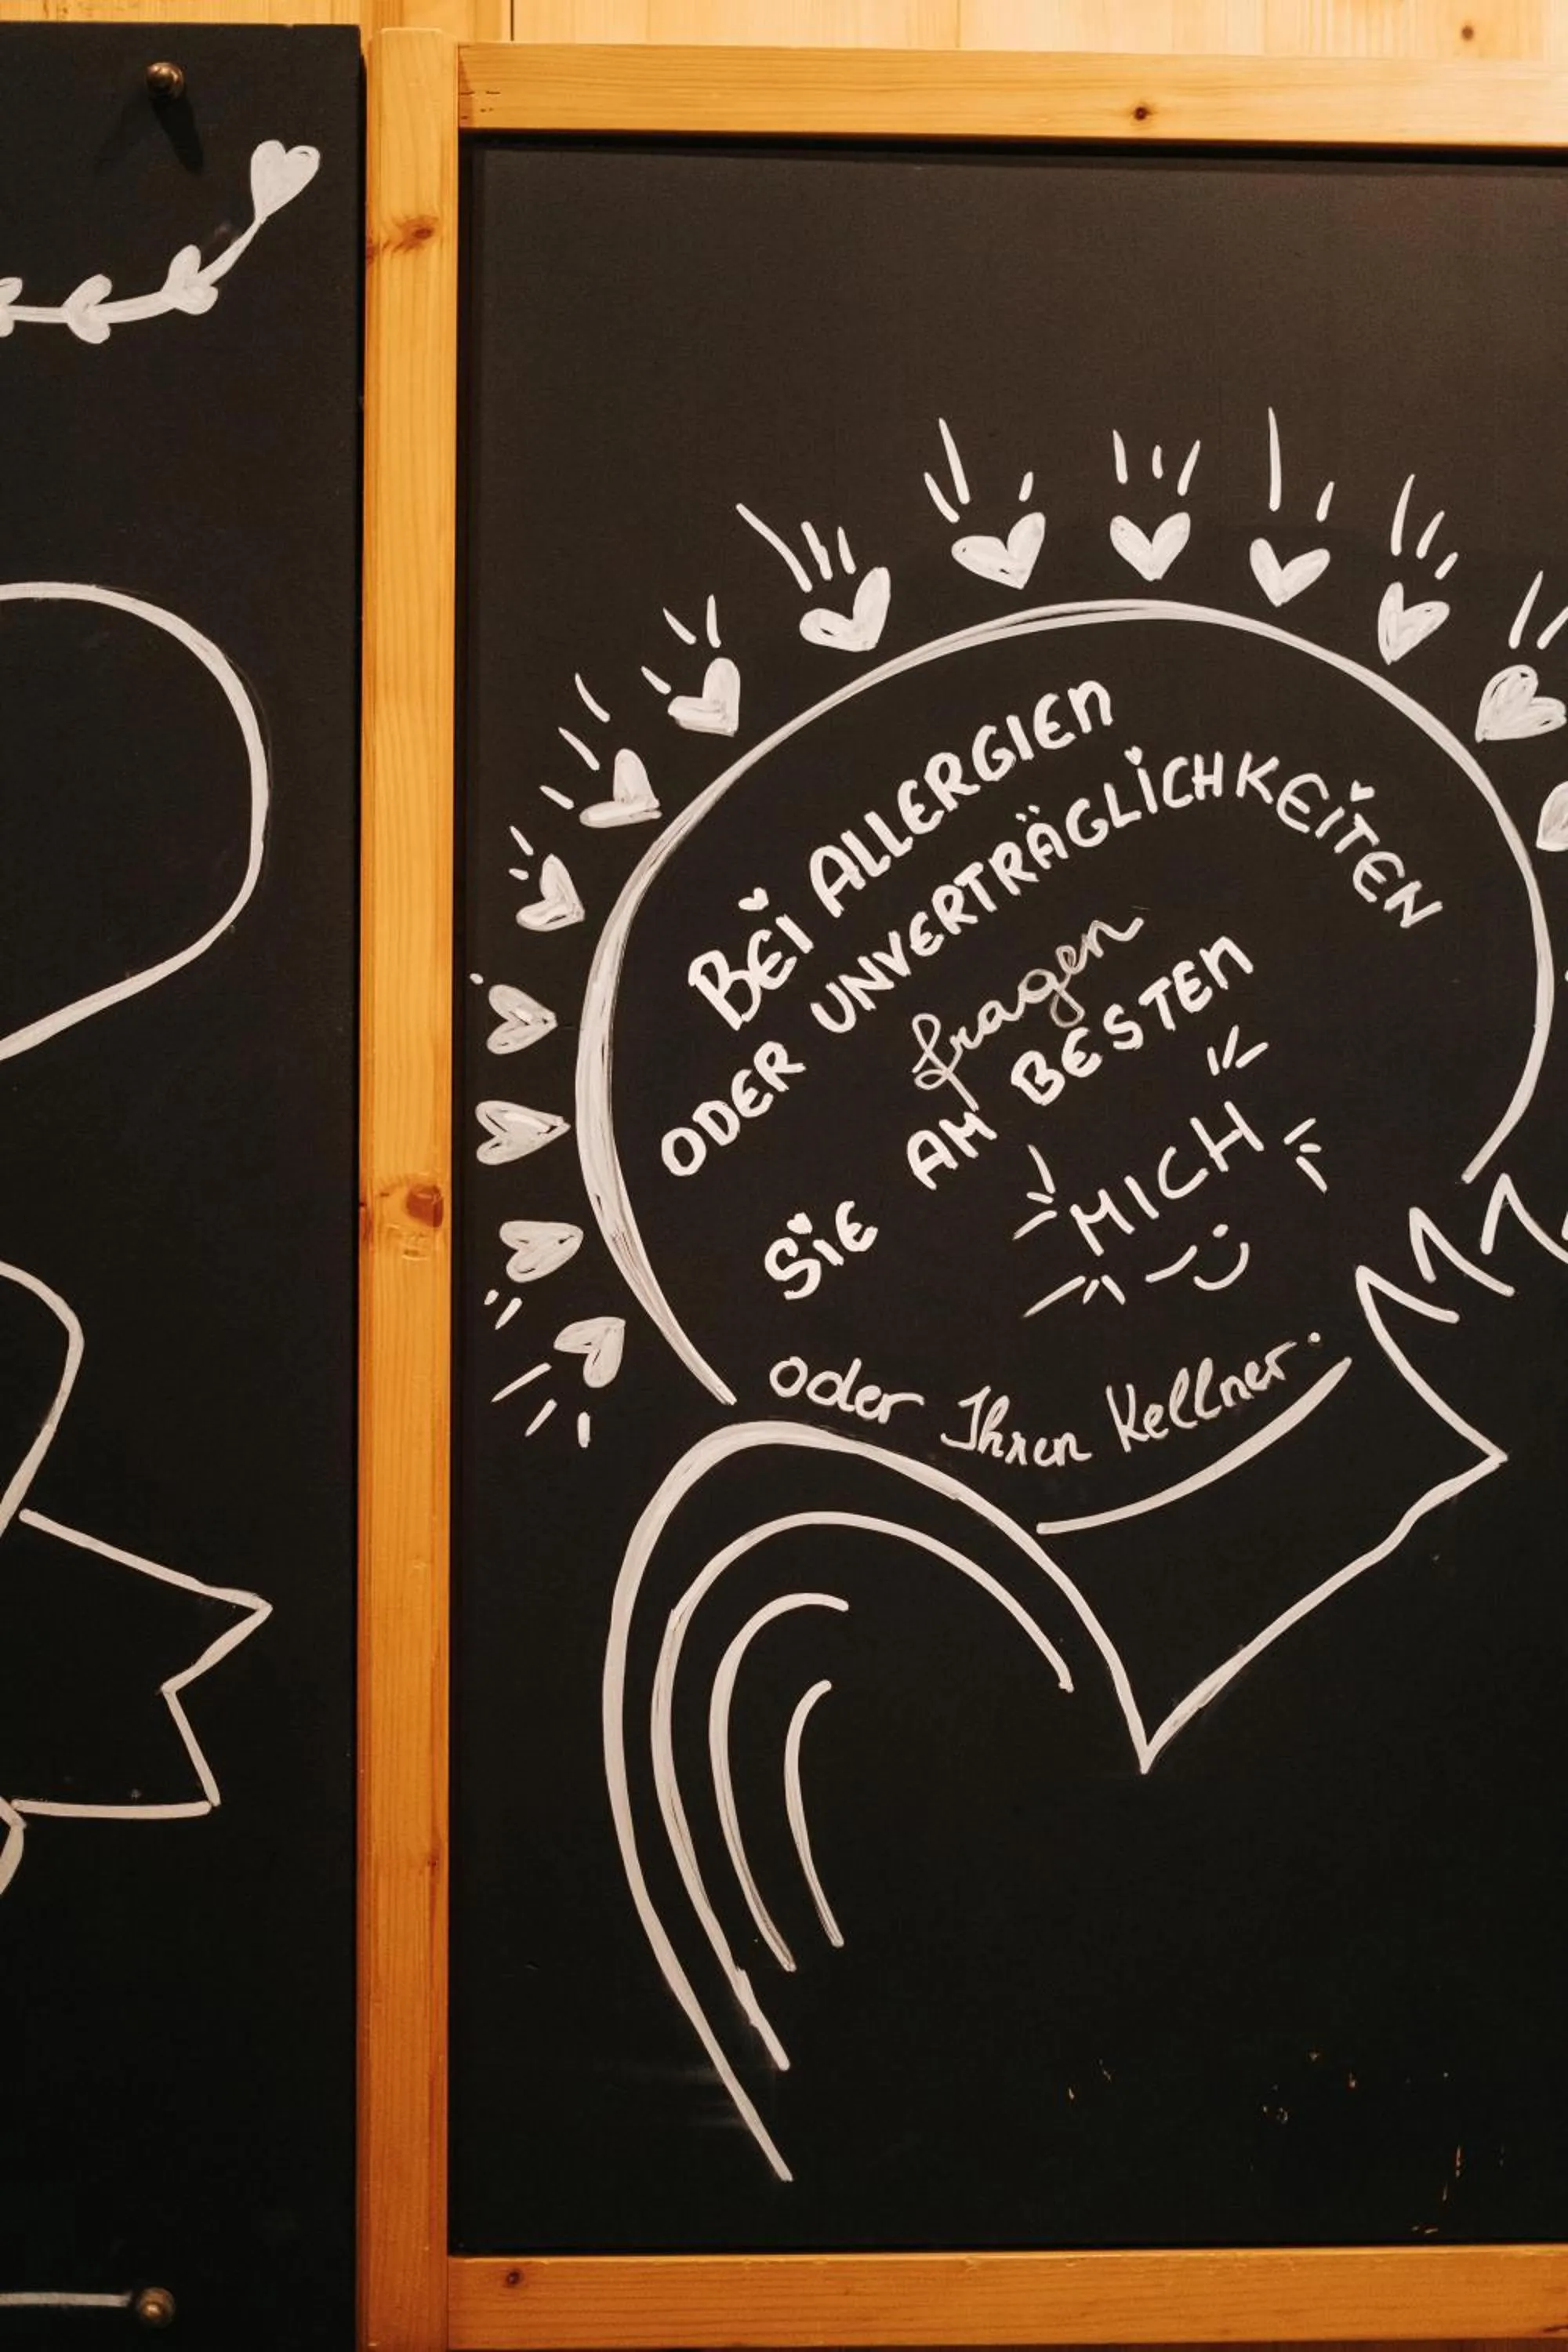 BEI ALLERGIEN
ODER UNVERTRÄGLICHKEITEN
fragen
SIE AM BESTEN
MICH
oder Ihren Kellner.